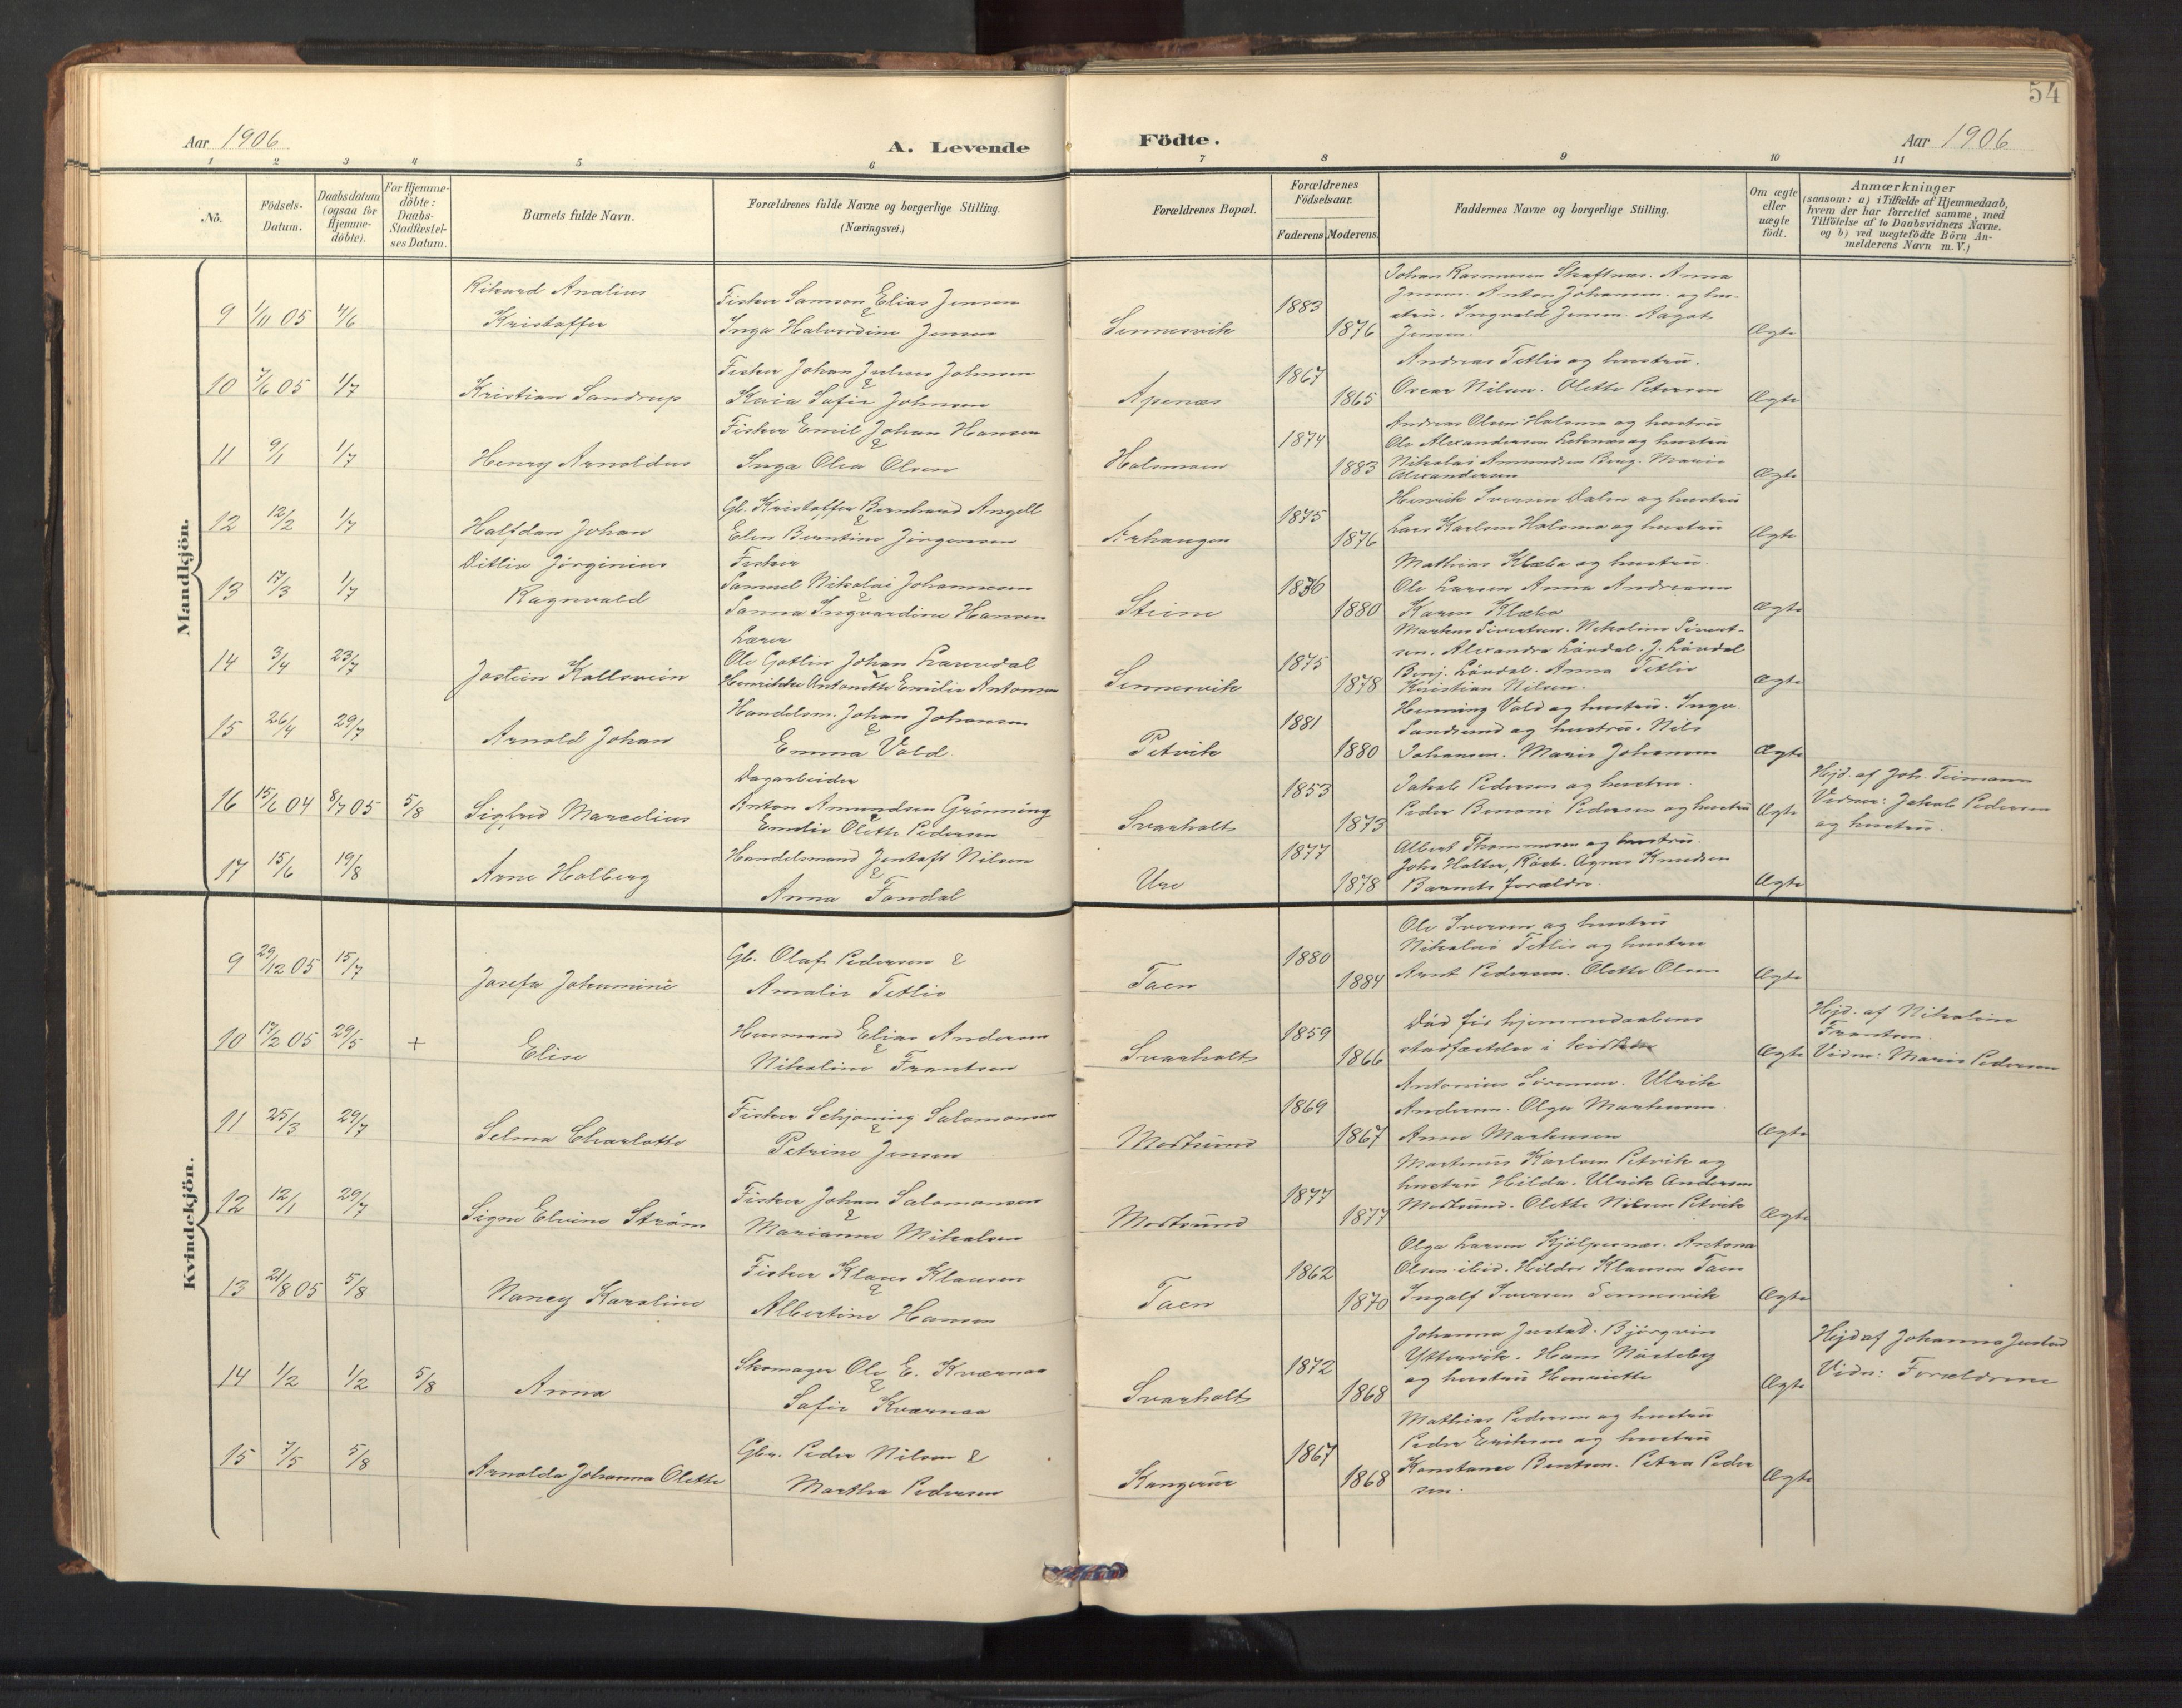 54
Aar 1906
A. Levende
Födte.
Aar 1906
1 2 3 4 5 6 7 8 9 10 11
No.
Födsels-
Datum.
Daabsdatum
(ogsaa for
Hjemme-
döbte).
For Hjemme-
döbte:
Daabs-
Stadfæstel-
ses Datum.
Barnets fulde Navn.
Forældrenes fulde Navne og borgerlige Stilling.
(Næringsvei.)
Forældrenes Bopæl.
Forældrenes
Födselsaar.
Faderens
Moderens.
Faddernes Navne og borgerlige Stilling.
Om ægte
eller
uægte
födt.
Anmærkninger
(saasom: a) i Tilfælde af Hjemmedaab,
hvem der har forrettet samme, med
Tilföielse af to Daabsvidners Navne.
og b) ved uægtefödte Börn An-
melderens Navn m. V.)
Mandkjön.
9 1/11 05 4/6
Rikard Analius
Kristoffer
Fisker Samson Elias Jensen
&
Inga Halverdine Jensen
Sennesvik
1883
1876
Johan Rasmussen Skaftnes. Anna
Jensen. Anton Johansen og hu-
stru. Ingvald Jensen. Aagot
Jensen.
Ægte
10 7/6 05 1/7
Kristian Sandrup
Fisker Johan Julius Johnsen
&
Karia Sofie Johnsen
Apenæs
1867
1865
Andreas Tetlie og hustrü.
Oscar Nilsen. Olette Petersen
Ægte
11 9/1 1/7
Henry Arnoldus
Fisker Emil Johan Hansen
&
Inga Olea Olsen
Holsmoen
1874
1883
Andreas Olsen Holsmo og hustrü
Ole Alexandersen Leknes og hustrü
Nikolai Amundsen Berg. Marie
Alexandersen
Ægte
12 12/2 1/7
Halfdan Johan
Gb. Kristoffer Bernhard Angell
&
Elen Berntine Jörgensen
Farhaugen
1875
1876
Henrik Iversen Dalen og hustrü
Lars Karlsen Holsmo og hustrü
Ægte
13 17/3 1/7
Ditlev Jörginius
Ragnvald
Fisker
Samuel Nikolai Johannesen
&
Sanna Ingvardine Hansen
Steine
1876
1880
Mathias Klæbo og hustrü.
Ole Larsen Anna Andreasen
Karen Klæbo
Ægte
14 3/4 23/7
Jostein Kollsvein
Lærer
Ole Gotlin Johan Larsedal
&
Henrikke Antonette Emilie Antonsen
Sennesvik
1875
1878
Markus Sivertsen. Nikoline Sivert-
sen. Alexandra Lövdal. J. Lövdal
Benj. Lövdal. Anna Tetlie
Kristian Nilsen.
Ægte
15 26/4 29/7
Arnold Johan
Handelsm. Johan Johansen
&
Emma Vold
Petvik
1881
1880
Henning Vold og hustrü. Inga
Sandsund og hustrü. Nils
Johansen. Marie Johansen
Ægte
16 15/6 04 8/7 05 5/8
Sigfred Marcelius
Dagarbeider
Anton Amundsen Grönning
&
Emelie Olette Pedersen
Svarholt
1853
1873
Jakob Pedersen og hustru.
Peder Benoni Pedersen og hustrü
Ægte
Hjd. af Joh. Teimann
Vidner: Jakob Pedersen
og hustrü.
17 15/6 19/8
Arne Holberg
Handelsmand Jentoft Nilsen
&
Anna Fondal
Ure
1877
1878
Albert Thommesen og hustrü.
Johs Holter, Röst. Agnes Knudsen
Barnets forældre.
Ægte
Kvindekjön.
9 29/12 05 15/7
Josefa Johamine
Gb. Olaf Pedersen &
Amalie Tetlie
Taen
1880
1884
Ole Iversen og hustrü
Nikolai Tetlie og hustru
Arnt Pedersen. Olette Olsen
Ægte
10 17/2 05 29/5 +
Elise
Husmand Elias Andersen
&
Nikoline Frantsen
Svarholt
1859
1866
Död för hjemmedaabens
stadfæstelse i kirken
Ægte
Hjd. af Nikoline
Frantsen.
Vidne: Marie Pedersen
11 25/3 29/7
Selma Charlotte
Fisker Schjöning Salomonsen
&
Petrine Jensen
Mortsund
1869
1867
Antonius Sörensen. Ulrik
Andersen. Olga Markussen.
Anna Markusen
Ægte
12 12/1 29/7
Signe Elvine Ström
Fisker Johan Salomonsen
&
Marianne Mikalsen
Mortsund
1877
1877
Martinus Karlsen Petvik og
hustrü Hilda. Ulrik Andersen
Mortsund. Olette Nilsen Petvik
Ægte
13 21/8 05 5/8
Nancy Karoline
Fisker Klaus Klausen
&
Albertine Hansen
Taen
1862
1870
Olga Larsen Kjölpesnæs. Antona
Olsen ibid. Hilder Klausen Taen
Ingolf Iversen Sennesvik
Ægte
14 1/2 1/2 5/8
Anna
Skomager Ole E. Kvarnaa
&
Sofie Kvarnaa
Svarholt
1872
1868
Johanna Justad. Björgvin
Yttervik. Hans Nösteby
og hustrü Henriette
Ægte
Hjd af Johanna Justad
Vidn: Forældrene
15 7/5 5/8
Arnolda Johanna Olette
Gbr. Peder Nilsen &
Martha Pedersen
Kangerur
1867
1868
Mathias Pedersen og hustrü
Peder Eriksen og hustrü
Konstanse Bentsen. Petra Peder
sen.
Ægte